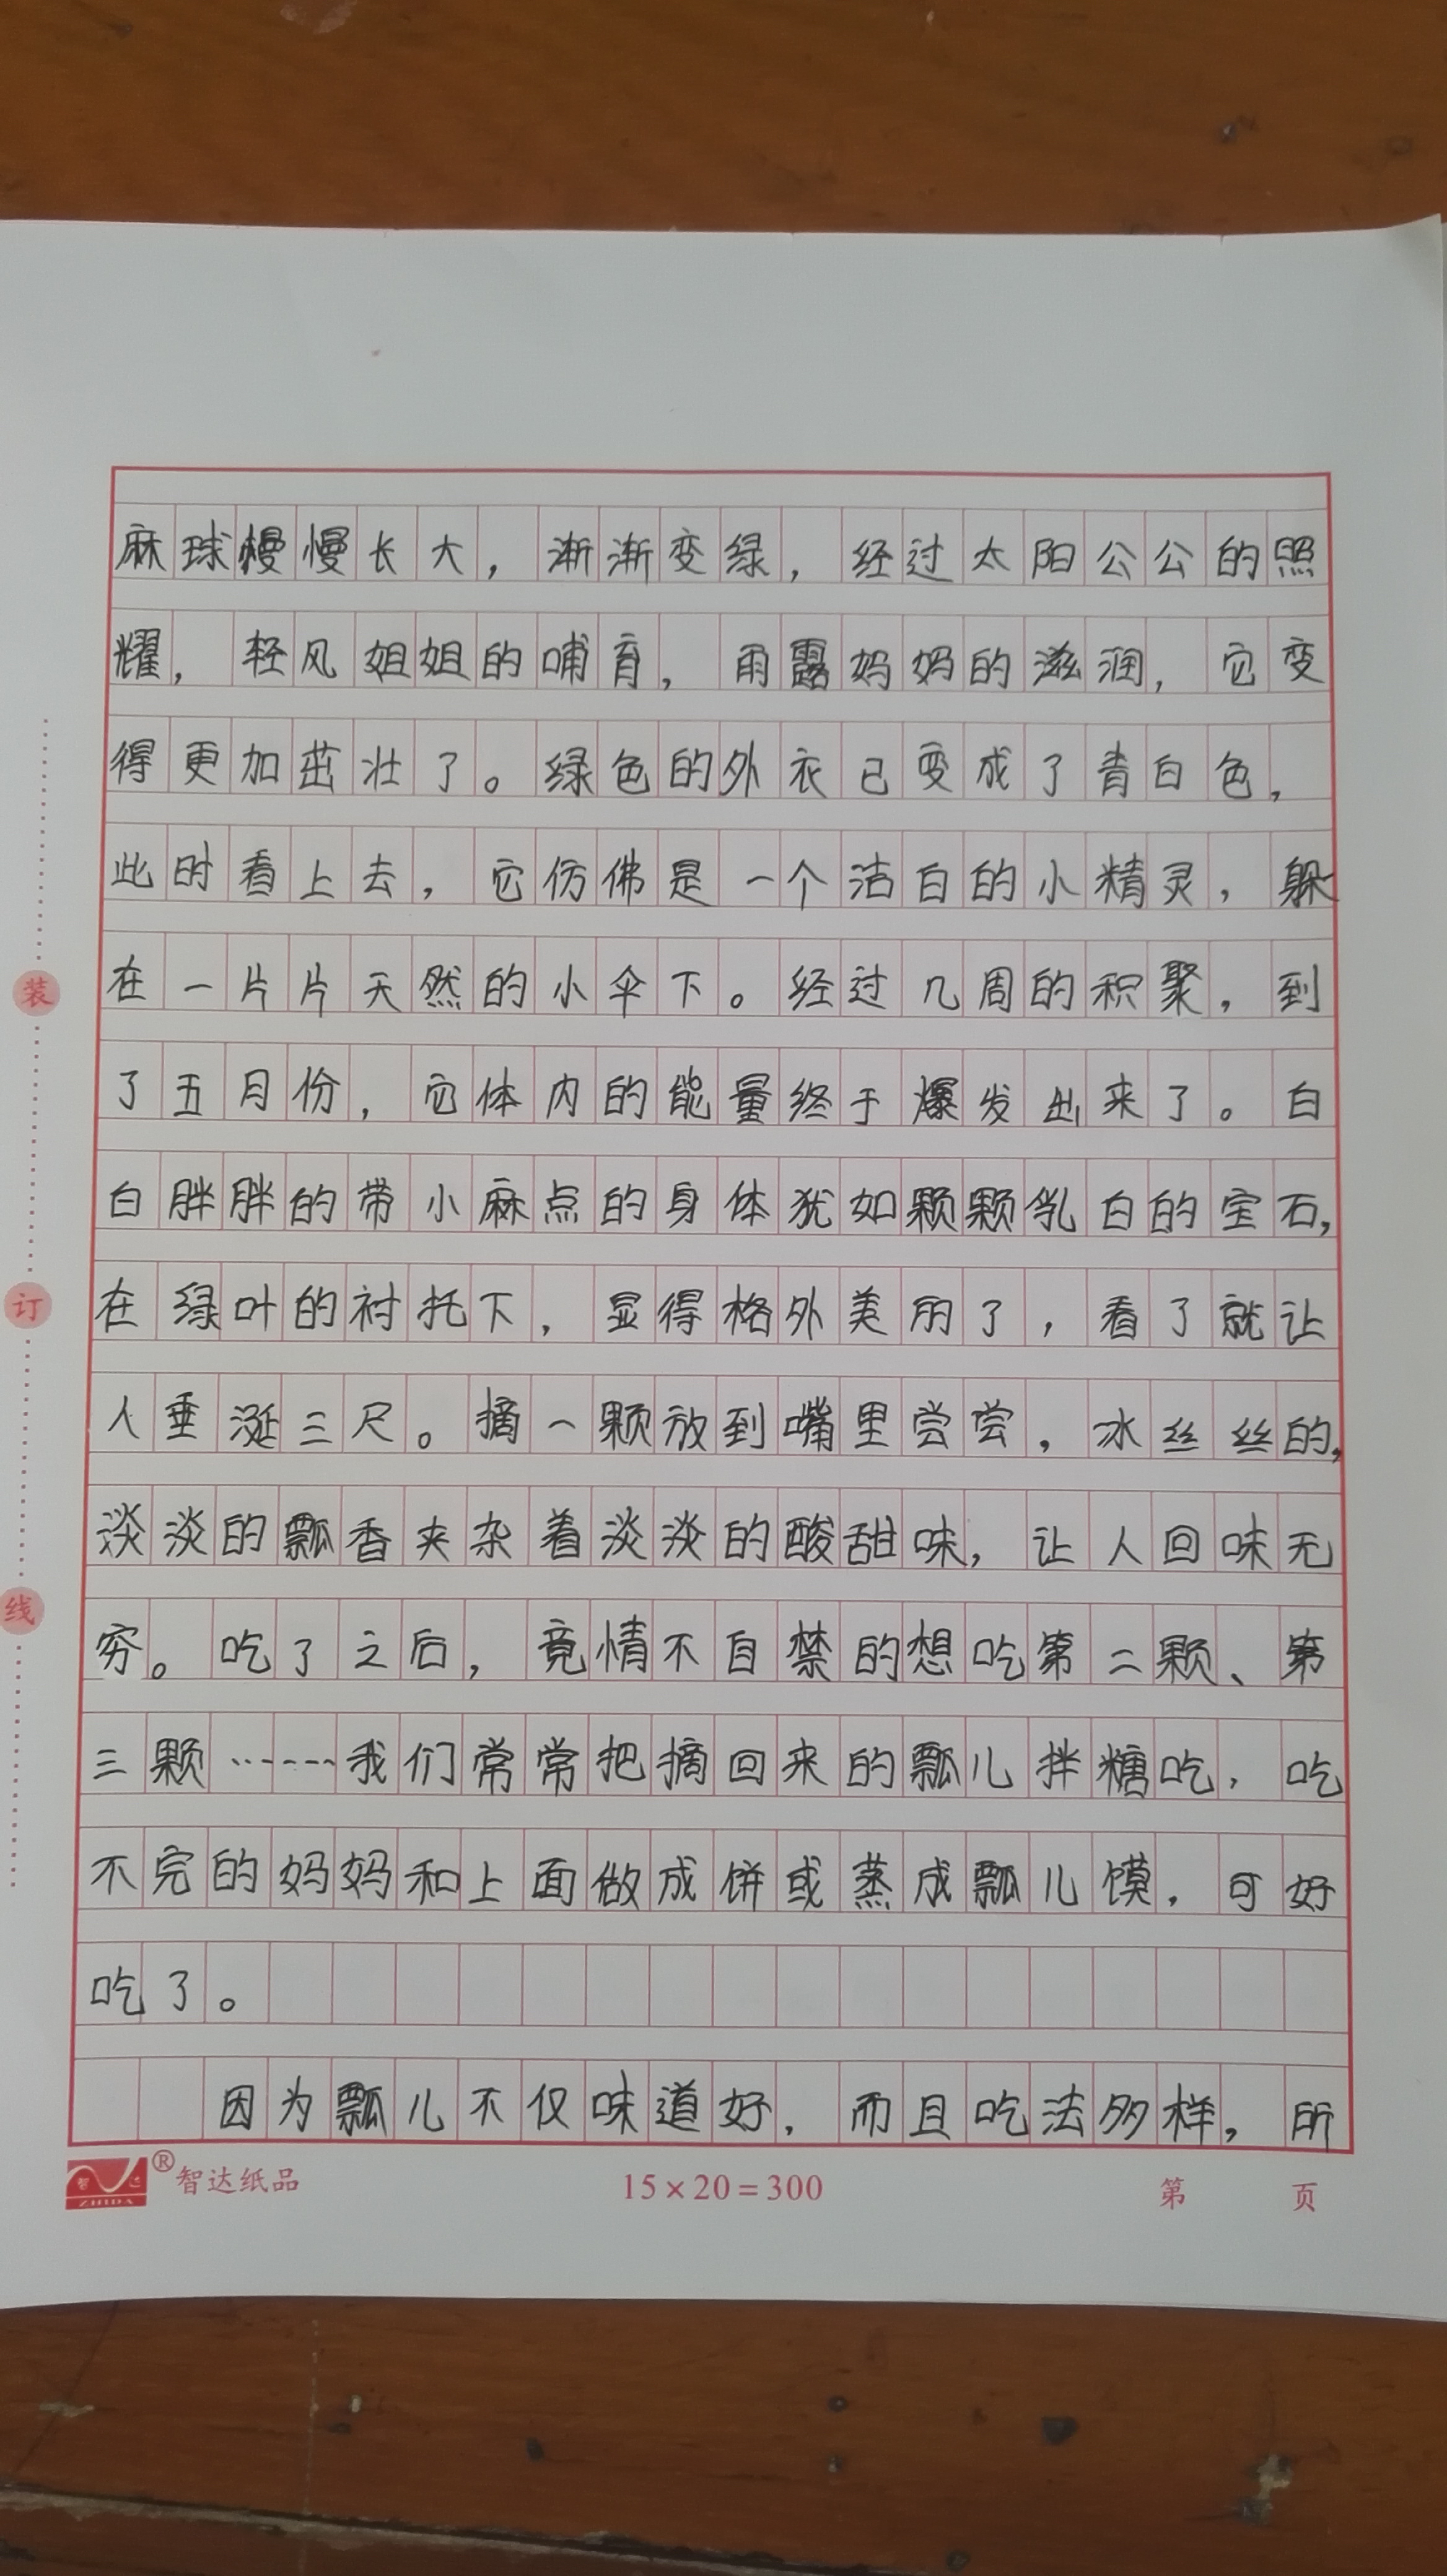 麻球慢慢长大，渐渐变绿，经过太阳公公的照
耀，轻风姐姐的哺育，雨露妈妈的滋润，它变
得更加茁壮了。绿色的外衣已变成了青白色，
此时看上去，它仿佛是一个洁白的小精灵，躲
在一片片天然的小伞下。经过几周的积聚，到
了五月份，它体内的能量终于爆发出来了。白
白胖胖的带小麻点的身体犹如颗颗乳白的宝石，
在绿叶的衬托下，显得格外美丽了，看了就让
人垂涎三尺。摘一颗放到嘴里尝尝，冰丝丝的，
淡淡的瓢香夹杂着淡淡的酸甜味，让人回味无
穷。吃了之后，竟情不自禁的想吃第二颗、第
三颗……我们常常把摘回来的瓢儿拌糖吃，吃
不完的妈妈和上面做成饼或蒸成瓢儿馍，可好
吃了。
因为瓢儿不仅味道好，而且吃法多样，所
装
订
线
智达
ZHIDA
®智达纸品
15×20=300
第 页